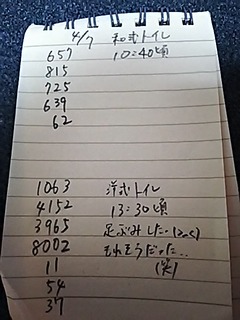 4/7 和式トイレ
657 10:40頃
815
725
639
62
1063 洋式トイレ
4152 13:30頃
3965 足ぶみした
8002 もれそうだった..
11 (笑)
54
37